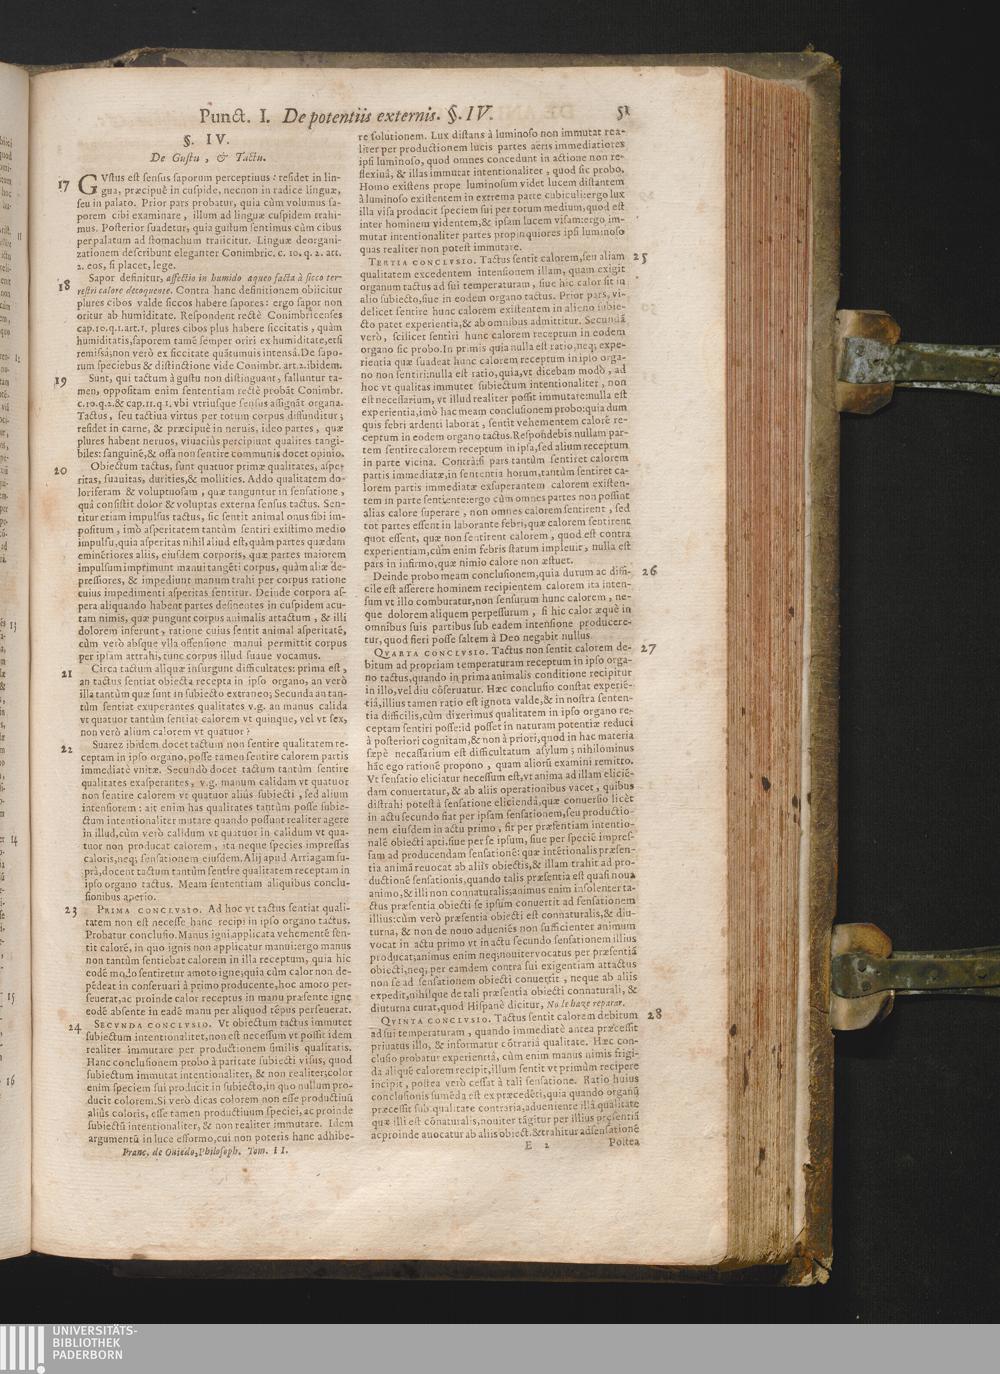 Punct. I. De potentiis externis. §. IV. 51
§. IV.
De Gustu, & Tactu.
17 GVstus est sensus saporum perceptiuus: residet in lin-
gua, præcipuè in cuspide, necnon in radice linguæ,
seu in palato. Prior pars probatur, quia cùm volumus sa-
porem cibi examinare, illum ad linguæ cuspidem trahi-
mus. Posterior suadetur, quia gustum sentimus cùm cibus
per palatum ad stomachum transicitur. Linguæ deorgani-
zationem describunt eleganter Conimbric. c. 10. q. 2. art.
2. eos, si placet, lege.
18 Sapor definitur, affectio in humido aqueo facta à sicco ter-
restri calore decoquente. Contra hanc definitionem obiicitur
plures cibos valde siccos habere sapores: ergo sapor non
oritur ab humiditate. Respondent rectè Conimbricenses
cap.10.q.1.art.1. plures cibos plus habere siccitatis, quàm
humiditatis,saporem tamē semper oriri ex humiditate,etsi
remissá;non verò ex siccitate quātumuis intensá.De sapo-
rum speciebus & distinctione vide Conimbr. art.2.ibidem.
19 Sunt, qui tactum à gustu non distinguant, falluntur ta-
men, oppositam enim sententiam rectè probāt Conimbr.
c.10.q.2.& cap.11.q.1. vbi vtriusque sensus assignāt organa.
Tactus, seu tactiua virtus per totum corpus diffunditur;
residet in carne, & præcipuè in neruis, ideo partes, quæ
plures habent neruos, viuaciùs percipiunt qualites tangi-
biles: sanguinē,& ossa non sentire communis docet opinio.
20 Obiectum tactus, sunt quatuor primæ qualitates, aspe-
ritas, suauitas, durities,& mollities. Addo qualitatem do-
loriferam & voluptuosam, quæ tanguntur in sensatione,
quâ consistit dolor & voluptas externa sensus tactus. Sen-
titur etiam impulsus tactus, sic sentit animal onus sibi im-
positum, imò asperitatem tantùm sentiri existimo medio
impulsu,quia asperitas nihil aliud est,quàm partes quædam
eminētiores aliis, eiusdem corporis, quæ partes maiorem
impulsum imprimunt manui tangēti corpus, quàm aliæ de-
pressiores, & impediunt manum trahi per corpus ratione
cuius impedimenti asperitas sentitur. Deinde corpora as-
pera aliquando habent partes desinentes in cuspidem acu-
tam nimis, quæ pungunt corpus animalis attactum, & illi
dolorem inferunt, ratione cuius sentit animal asperitatē,
cùm verò absque vlla offensione manui permittit corpus
per ipsam attrahi, tunc corpus illud suaue vocamus.
21 Circa tactum aliquæ insurgunt difficultates: prima est,
an tactus sentiat obiecta recepta in ipso organo, an verò
illa tantùm quæ sunt in subiecto extraneo; Secunda an tan-
tùm sentiat exuperantes qualitates v.g. an manus calida
vt quatuor tantùm sentiat calorem vt quinque, vel vt sex,
non verò alium calorem vt quatuor?
22 Suarez ibidem docet tactum non sentire qualitatem re-
ceptam in ipso organo, posse tamen sentire calorem partis
immediatè vnitæ. Secundò docet tactum tantùm sentire
qualitates exasperantes, v.g. manum calidam vt quatuor
non sentire calorem vt quatuor alius subiecti, sed alium
intensiorem: ait enim has qualitates tantùm posse subie-
ctum intentionaliter mutare quando possunt realiter agere
in illud,cùm verò calidum vt quatuor in calidum vt qua-
tuor non producat calorem, ita neque species impressas
caloris,neq; sensationem eiusdem.Alij apud Arriagam su-
prà,docent tactum tantùm sentire qualitatem receptam in
ipso organo tactus. Meam sententiam aliquibus conclu-
sionibus aperio.
23 PRIMA CONCLVSIO. Ad hoc vt tactus sentiat quali-
tatem non est necesse hanc recipi in ipso organo tactus.
Probatur conclusio.Manus igni applicata vehementē sen-
tit calorē, in quo ignis non applicatur manui:ergo manus
non tantùm sentiebat calorem in illa receptum, quia hic
eodē modo sentiretur amoto igne;quia cùm calor non de-
pēdeat in conseruari à primo producente,hoc amoto per-
seuerat,ac proinde calor receptus in manu præsente igne
eodē absente in eadē manu per aliquod tēpus perseuerat.
24 SECVNDA CONCLVSIO. Vt obiectum tactus immutet
subiectum intentionalitet,non est necessum vt possit idem
realiter immutare per productionem similis qualitatis.
Hanc conclusionem probo à paritate subiecti visus, quod
subiectum immutat intentionaliter, & non realiter;color
enim speciem sui producit in subiecto,in quo nullum pro-
ducit colorem.Si verò dicas colorem non esse productiuū
aliùs coloris, esse tamen productiuum speciei, ac proinde
subiectū intentionaliter, & non realiter immutare. Idem
argumentū in luce efformo,cui non poteris hanc adhibe-
Franc. de Ouiedo,Philosoph. Tom. II.
re solutionem. Lux distans à luminoso non immutat rea-
liter per productionem lucis partes aeris immediatiores
ipsi luminoso, quod omnes concedunt in actione non re-
flexiuâ, & illas immutat intentionaliter, quod sic probo.
Homo existens prope luminosum videt lucem distantem
à luminoso existentem in extrema parte cubiculi:ergo lux
illa visa producit speciem sui per totum medium,quod est
inter hominem videntem,& ipsam lucem visam:ergo im-
mutat intentionaliter partes propinquiores ipsi luminoso
quas realiter non potest immutare.
25 TERTIA CONCLVSIO. Tactus sentit calorem,seu aliam
qualitatem excedentem intensionem illam, quam exigit
organum tactus ad sui temperaturam, siue hic calor sit in
alio subiecto,siue in eodem organo tactus. Prior pars, vi-
delicet sentire hunc calorem existentem in alieno subie-
cto patet experientia,& ab omnibus admittitur. Secunda
verò, scilicet sentiri hunc calorem receptum in eodem
organo sic probo.In primis quia nulla est ratio,neq; expe-
rientia quæ suadeat hunc calorem receptum in ipso orga-
no non sentiri:nulla est ratio,quia,vt dicebam modò, ad
hoc vt qualitas immutet subiectum intentionaliter, non
est necessarium, vt illud realiter possit immutare:nulla est
experientia,imò hac meam conclusionem probo:quia dum
quis febri ardenti laborat, sentit vehementem calorē re-
ceptum in eodem organo tactus.Respondebis nullam par-
tem sentire calorem receptum in ipsa,sed alium receptum
in parte vicina. Contrà:si pars tantùm sentiret calorem
partis immediatæ,in sententia horum,tantùm sentiret ca-
lorem partis immediatæ exsuperantem calorem existen-
tem in parte sentiente:ergo cùm omnes partes non possint
alias calore superare, non omnes calorem sentirent, sed
tot partes essent in laborante febri,quæ calorem sentirent
quot essent, quæ non sentirent calorem, quod est contra
experientiam,cùm enim febris statum impleuit, nulla est
pars in infirmo,quæ nimio calore non æstuet.
26 Deinde probo meam conclusionem,quia durum ac diffi-
cile est asserere hominem recipientem calorem ita inten-
sum vt illo comburatur,non sensurum hunc calorem, ne-
que dolorem aliquem perpessurum, si hic calor æquè in
omnibus suis partibus sub eadem intensione producere-
tur, quod fieri posse saltem à Deo negabit nullus.
27 QVARTA CONCLVSIO. Tactus non sentit calorem de-
bitum ad propriam temperaturam receptum in ipso orga-
no tactus,quando in prima animalis conditione recipitur
in illo,vel diu cōseruatur. Hæc conclusio constat experiē-
tiâ,illius tamen ratio est ignota valde,& in nostra senten-
tia difficilis,cùm dixerimus qualitatem in ipso organo re-
ceptam sentiri posse:id posset in naturam potentiæ reduci
à posteriori cognitam,& non à priori,quod in hac materia
sæpè necessarium est difficultatum asylum; nihilominus
hāc ego rationē propono, quam aliorū examini remitto.
Vt sensatio eliciatur necessum est,vt anima ad illam eliciē-
dam conuertatur,& ab aliis operationibus vacet, quibus
distrahi potest à sensatione eliciendâ,quæ conuersio licèt
in actu secundo fiat per ipsam sensationem,seu productio-
nem eiusdem in actu primo, fit per præsentiam intentio-
nalē obiecti apti,siue per se ipsum, siue per speciē impres-
sam ad producendam sensationē: quæ intētionalis præsen-
tia animā reuocat ab aliis obiectis,& illam trahit ad pro-
ductionē sensationis,quando talis præsentia est quasi noua
animo,& illi non connaturalis;animus enim insolenter ta-
ctus præsentia obiecti se ipsum conuertit ad sensationem
illius:cùm verò præsentia obiecti est connaturalis,& diu-
turna, & non de nouo adueniēs non sufficienter animum
vocat in actu primo vt in actu secundo sensationem illius
producat;animus enim neq;nouiter vocatus per præsentiâ
obiecti,neq; per eamdem contra sui exigentiam attactus
non se ad sensationem obiecti conuertit, neque ab aliis
expedit,nihilque de tali præsentia obiecti connaturali, &
diuturna curat,quod Hispanè dicitur, No le haze reparar.
28 QVINTA CONCLVSIO. Tactus sentit calorem debitum
ad sui temperaturam, quando immediatè antea præcessit
priuatus illo, & informatur cōtrariâ qualitate. Hæc con-
clusio probatur experientiâ, cùm enim manus nimis frigi-
da aliquē calorem recipit,illum sentit vt primùm recipere
incipit, postea verò cessat à tali sensatione. Ratio huius
conclusionis sumēda est ex præcedēti,quia quando organū
præcessit sub qualitate contraria,adueniente illâ qualitate
quæ illi est cōnaturalis,nouiter tāgitur per illius præsentiâ
acproinde auocatur ab aliis obiect.&trahitur ad sensationē
E 2 Postea
UNIVERSITÄTS-
BIBLIOTHEK
PADERBORN